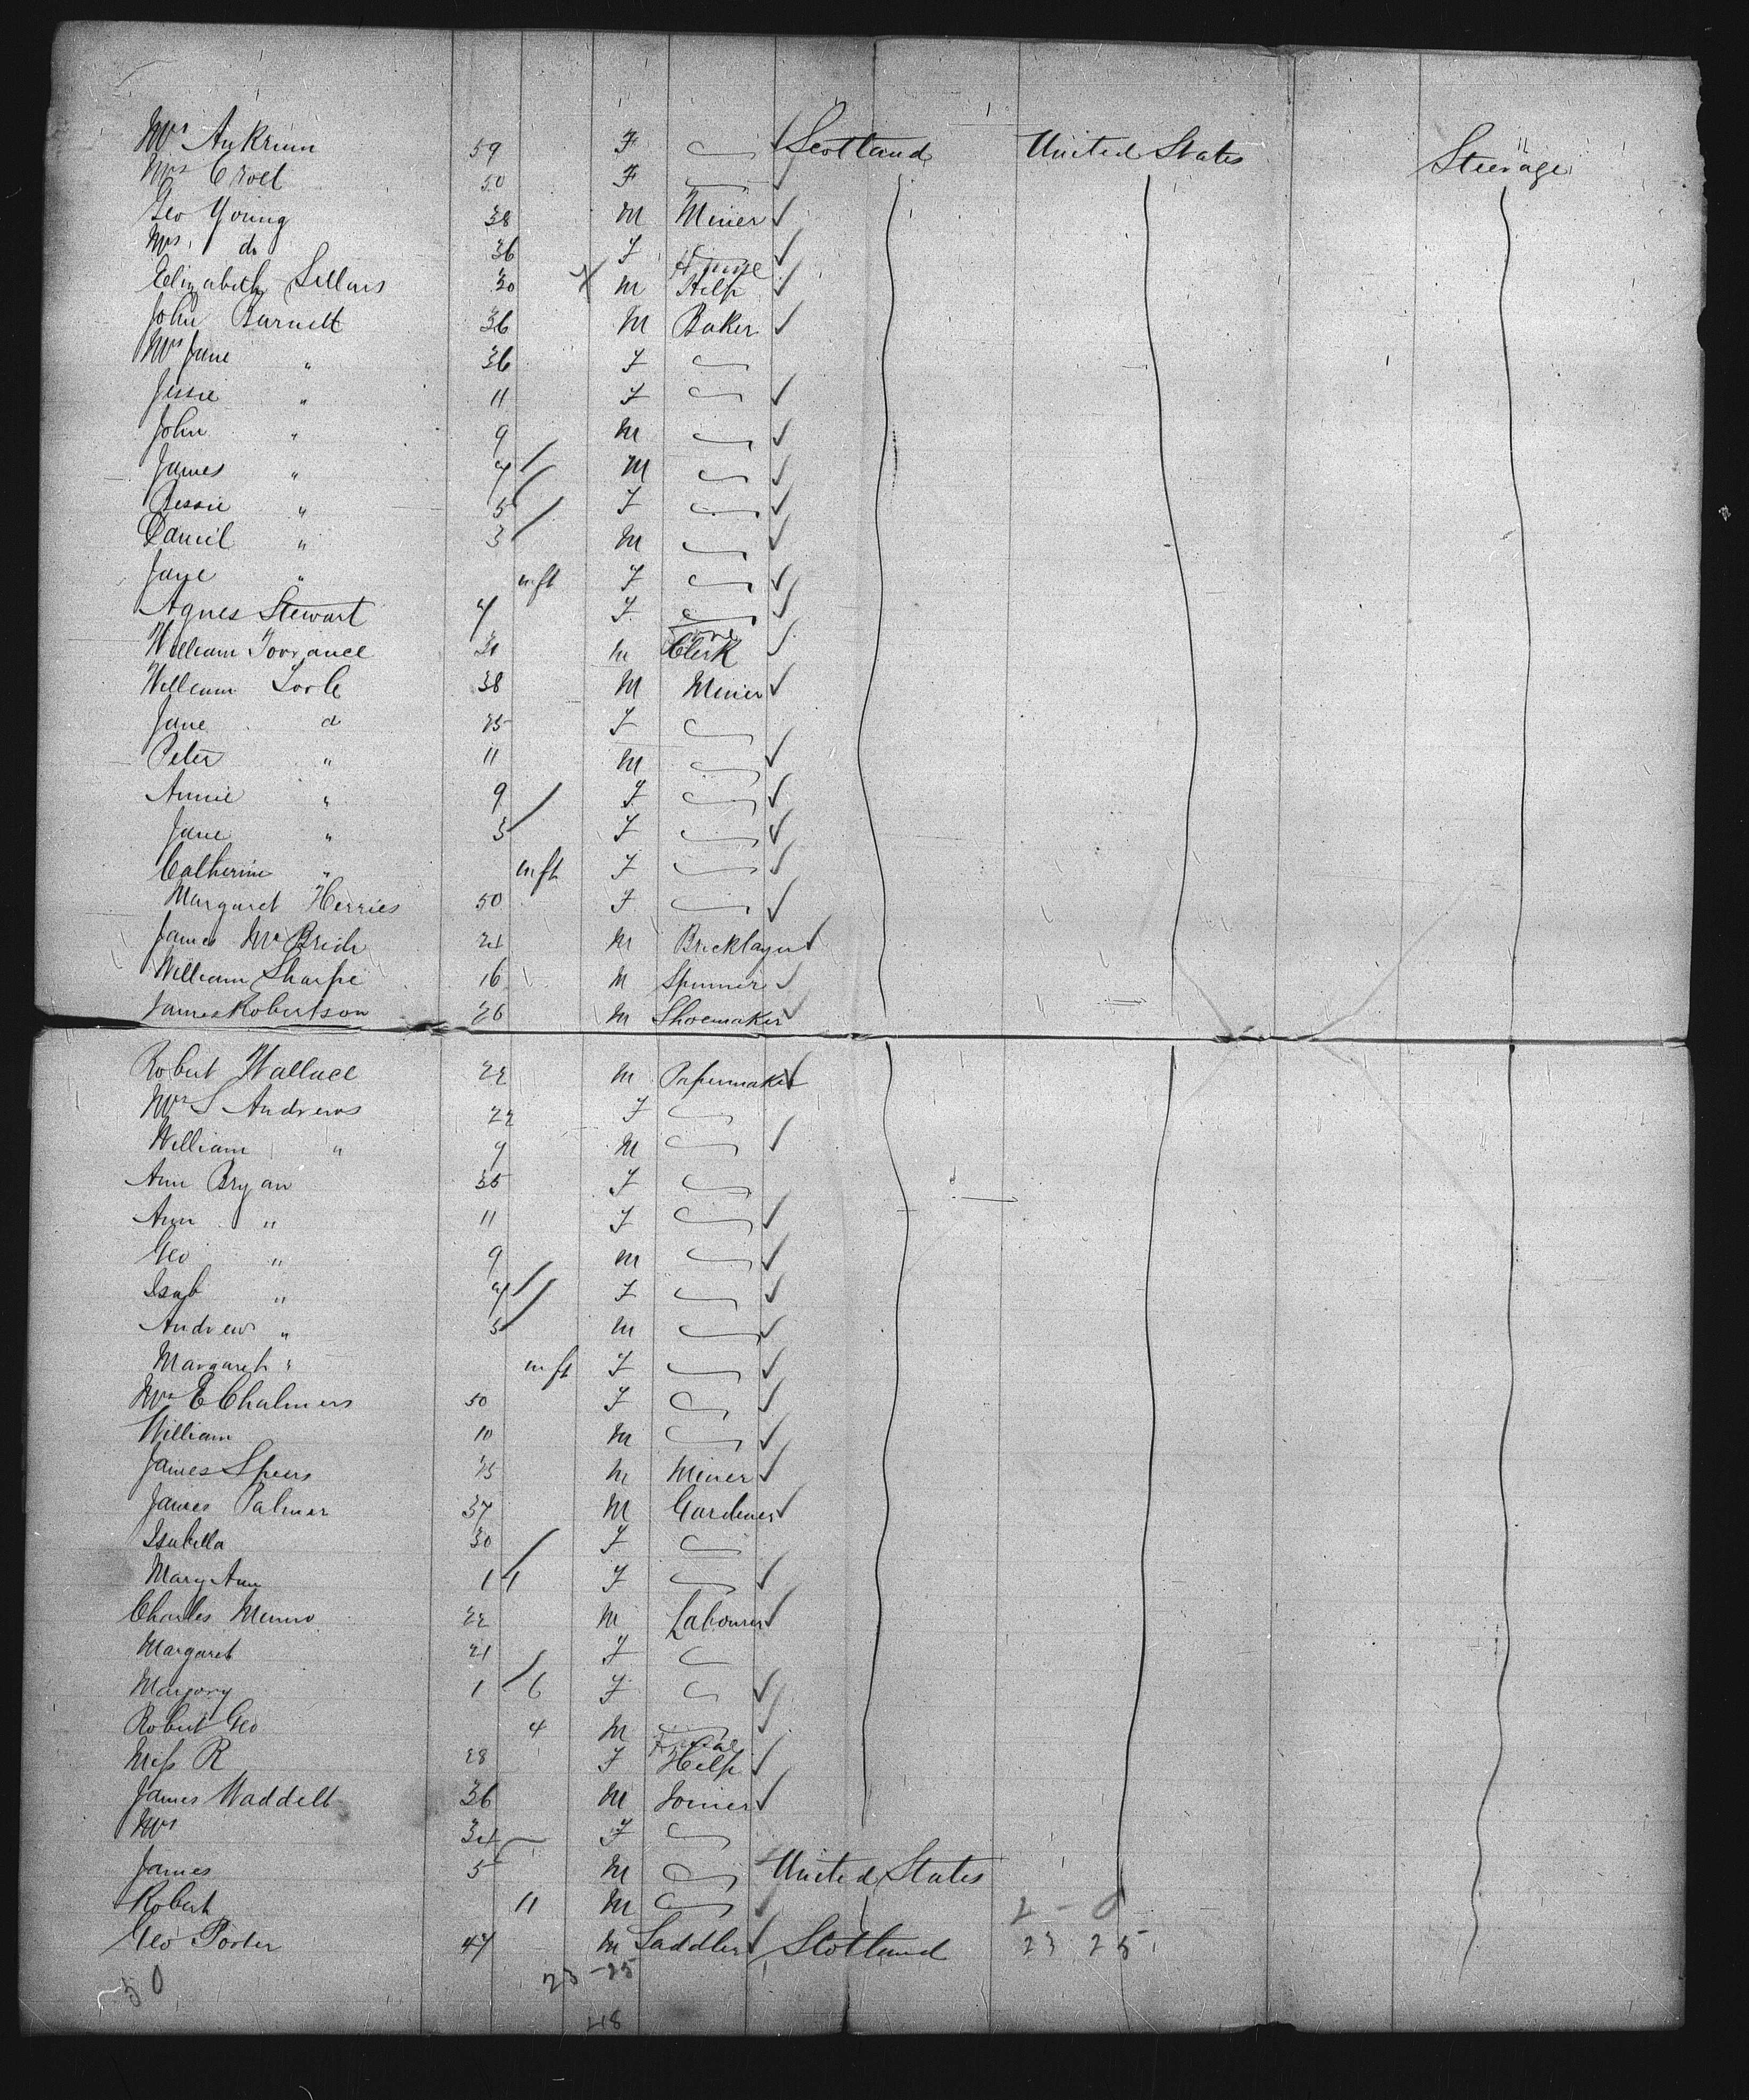 Mrs Ankrum 59 F Scotland United States Steerage
Mrs 50 F
Geo Young 38 M Miner
Mrs do 36 F
Elizabeth Sellars 30 M House Help
John Burnett 36 M Baker
Mrs Jane " 36 F
Jessie " 11 F
John " 9 M
James " 7 M
Bessie " 5 F
Daniel " 3 M
Jane " inft F
Agnes Stewart 7 F
William Torrance M Clerk
William 38 M Miner
Jane F
Peter " 11 M
Annie " 9 F
Jane " 3 F
Catherine " inft F
Margaret Herries 50 F
James McBride 24 M Bricklayer
William Sharpe 16 M Spinner
James Robertson 26 M Shoemaker
Robert Wallace 22 M Papermaker
Mrs S Andrews 22 F
William " 9 M
Ann Bryan 35 F
Ann " 11 F
Geo " 9 M
Isab " 7 F
Andrew " 5 M
Margaret " inft F
Mrs E Chalmers 50 F
William 10 M
James Speirs M Miner
James Palmer 37 M Gardener
Isabella 30 F
Mary Ann 1 1 F
Charles Munro 22 M Labourer
Margaret 21 F
Margory 1 6 F
Robert Geo 4 M
Miss R 28 F Help
James Waddell 36 M Joiner
Mrs 34 F
James 5 M United States
Robert 11 M 2 - 0
Geo Porter 47 M Saddler Scotland 23 25
50 23 - 25
48